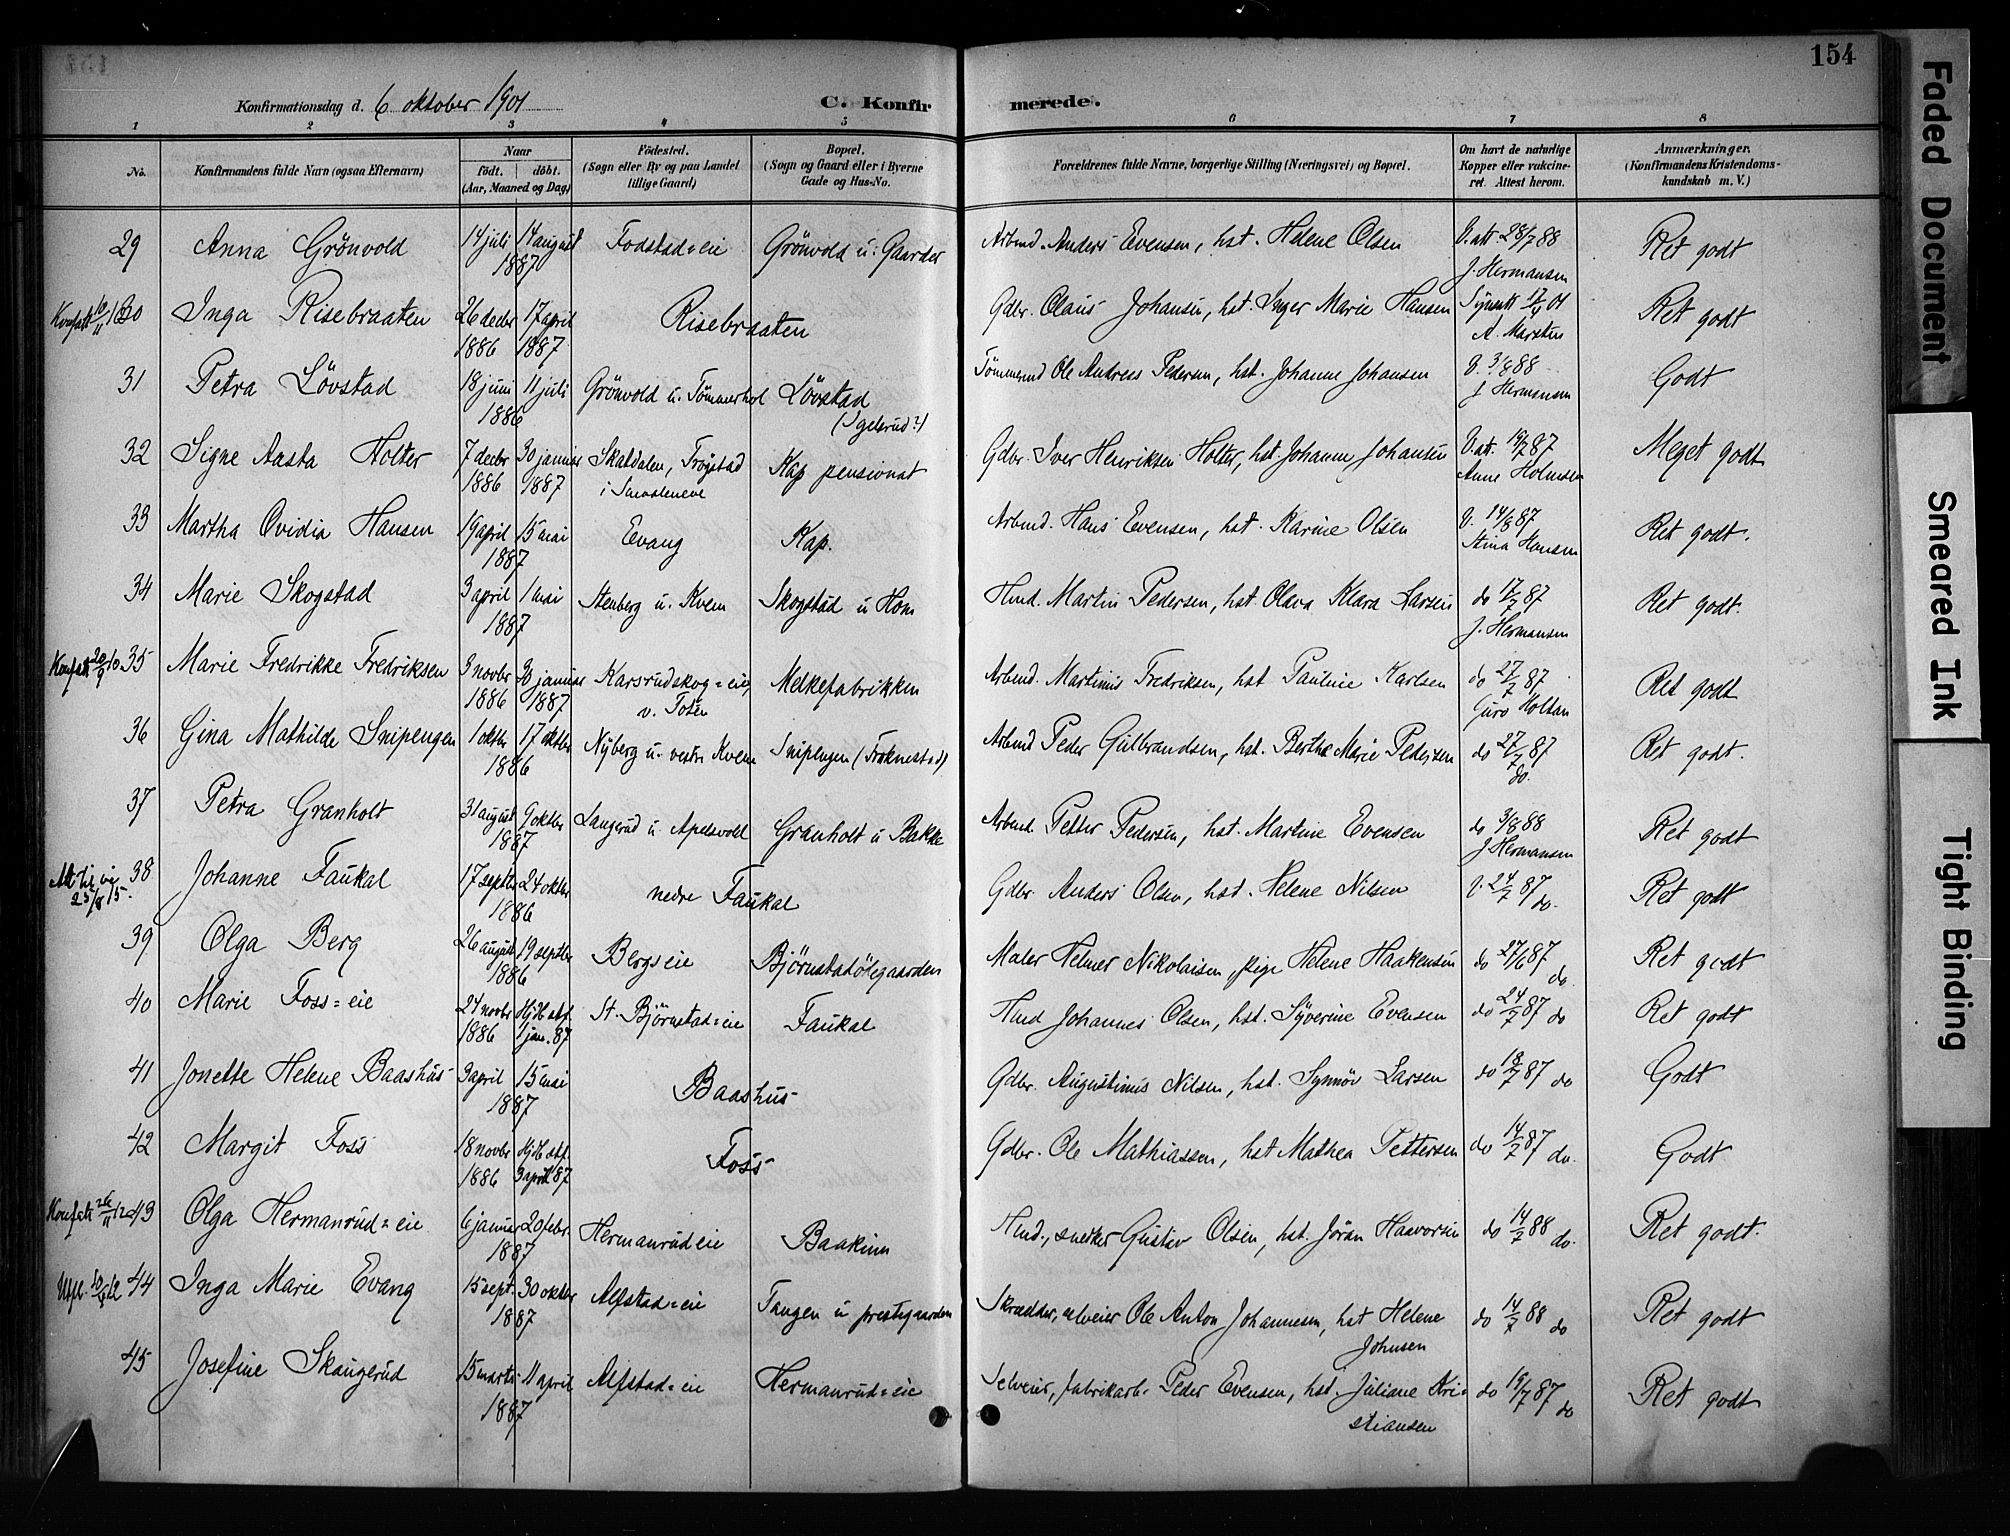 154
Konfirmationsdag d. 6 oktober 1901
C. Konfirmerede.
1 2 3 4 5 6 7 8
No.
Konfirmandens fulde Navn (ogsaa Efternavn)
Naar
födt. döbt.
(Aar, Maaned og Dag)
Födested.
(Sogn eller By og paa Landet
tillige Gaard)
Bopæl.
(Sogn og Gaard eller i Byerne
Gade og Hus-No.
Forældrenes fulde Navne, borgerlige Stilling (Næringsvei) og Bopæl.
Om havt de naturlige
Kopper eller vakcine-
ret. Attest herom.
Anmærkninger.
(Konfirmandens Kristendoms-
kundskab m. V.)
29 Anna Grönvold 14 juli 14 august 1887 Fodstad=eie Grönvold u. Gaarder Arbmd. Anders Evensen, hst. Helene Olsen V. att. 28/7 88 J. Hermansen Ret godt
30 Inga Risebraaten 26 decbr 1886 17 april 1887 Risebraaten Gdbr. Olaus Johansen, hst. Inger Marie Hansen A. Marstein Ret godt
31 Petra Lövstad 18 juni 11 juli 1886 Grönvold u. Tömmerhol Lövstad Tömmermd Ole Andreas Pedersen, hst. Johanne Johansen V. 3/8 88 J Hermansen Godt
32 Signe Aasta Holter 7 decbr 1886 30 januar 1887 Skatdalen, Trögstad i Smaalenene Kap pensionat Gdbr. Iver Henriksen Holter, hst. Johanne Johansen V. att. 19/7 87 Anne Holmsen Meget godt
33 Martha Ovidia Hansen 19 april 15 mai 1887 Evang Kap. Arbmd. Hans Evensen, hst. Karine Olsen V. 14/8 87 Stina Hansen Ret godt.
34 Marie Skogstad 3 april 1 mai 1887 Stenberg u. Kvem Skogstad u Hom Hmd. Martin Pedersen, hst. Olava Klara Larsen do 17/7 87 J. Hermansen Ret godt.
Konfatt 20/9 10 35 Marie Fredrikke Fredriksen 3 novbr 1886 30 januar 1887 Karsrudskog=eie, v. Toten Melkefabrikken Arbmd. Martinus Fredriksen, hst Pauline Karlsen do 27/7 87 Guro Holtan Ret godt
36 Gina Mathilde Snipengen 1 oktbr 17 oktbr 1886 Nyberg u. vestre Kvem Snipengen (Fraknestad) Arbmd Peder Gulbrandsen, hst. Berthe Marie Pedersen do 27/7 87 do. Ret godt.
37 Petra Granholt 31 august 9 oktbr 1887 Langerud u. Apelsvold Granholt u Bakke Arbmd. Petter Pedersen, hst. Martine Evensen do 3/8 88 J Hermansen Ret godt
38 Johanne Faukal 17 septbr 24 oktbr 1886 nedre Faukal Gdbr. Anders Olsen, hst. Helene Nilsen V. 24/7 87 do. Ret godt
39 Olga Berg 26 august 19 septbr 1886 Bergs eie Björnstadödegaarden Maler Helmer Nikolaisen, pige Helene Haakensen do 27/6 87 do. Ret godt
40 Marie Foss=eie 24 novbr 1886 Hjdb stf. 1 jan. 87 St. Björnstad=eie Faukal Hmd Johannes Olsen, hst. Syverine Evensen do 24/7 87 do Ret godt
41 Jonette Helene Baashus 3 april 15 mai 1887 Baashus Gdbr. Augustinus Nilsen, hst. Synnöv Larsen do 18/7 87 do Godt
42 Margit Foss 18 novbr 1886 Hjdb stf. 3 april 87 Foss Gdbr. Ole Mathiassen, hst Mathea Pettersen do 14/7 87 do. Godt
Konfatt 26/11 12 43 Olga Hermanrud=eie 6 januar 20 febr. 1887 Hermanrud eie Baakinn Hmd., snedker Gustav Olsen, hst. Jöran Haavorsen do 14/7 88 do. Ret godt.
44 Inga Marie Evang 15 sept. 30 oktbr 1887 Alfstad=eie Tangen u prestegaarden Skrædder, selveier Ole Anton Johannesen, hst Helene Johnsen do 14/7 88 do Ret godt
45 Josefine Skaugerud 15 marts 11 april 1887 Alfstad=eie Hermanrud=eie Selveier, fabrikarb. Peder Evensen, hst. Juliane Kristiansen do 19/7 87 do Ret godt
Faded Document
Smeared Ink
Tight Binding